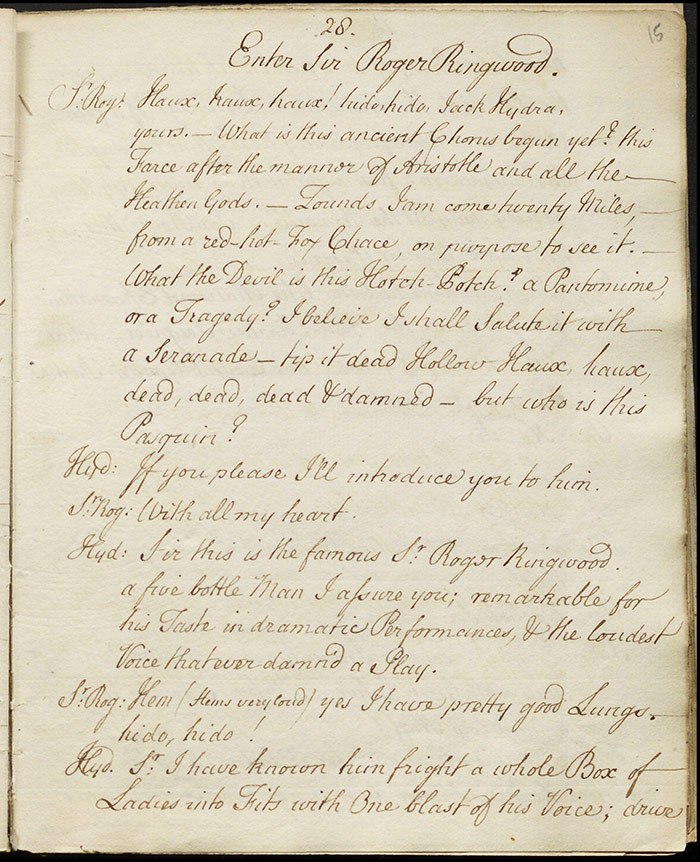 28.
15
Enter Sir Roger Ringwood.
Sr. Rog: Haux, haux, haux! hido, hido, Jack Hydra,
yours. — What is this ancient Chorus begun yet? this
Farce after the manner of Aristotle and all the —
Heathen Gods. — Zounds I am come twenty Miles, —
from a red-hot-Fox Chace, on purpose to see it. —
What the Devil is this Hotch-Potch? a Pantomime,
or a Tragedy? I believe I shall Salute it with —
a Seranade — tip it dead Hollow Haux, haux,
dead, dead, dead & damned — but who is this
Pasquin?
Hyd: If you please I'll introduce you to him.
Sr. Rog: With all my heart.
Hyd: Sir this is the famous Sr. Roger Ringwood.
a five bottle Man I aſsure you; remarkable for
his Taste in dramatic Performances, & the loudest
Voice that ever damn'd a Play.
Sr. Rog: Hem (Hems very loud) yes I have pretty good Lungs. —
hido, hido!
Hyd. Sr. I have known him fright a whole Box of —
Ladies into Fits with One blast of his Voice; drive